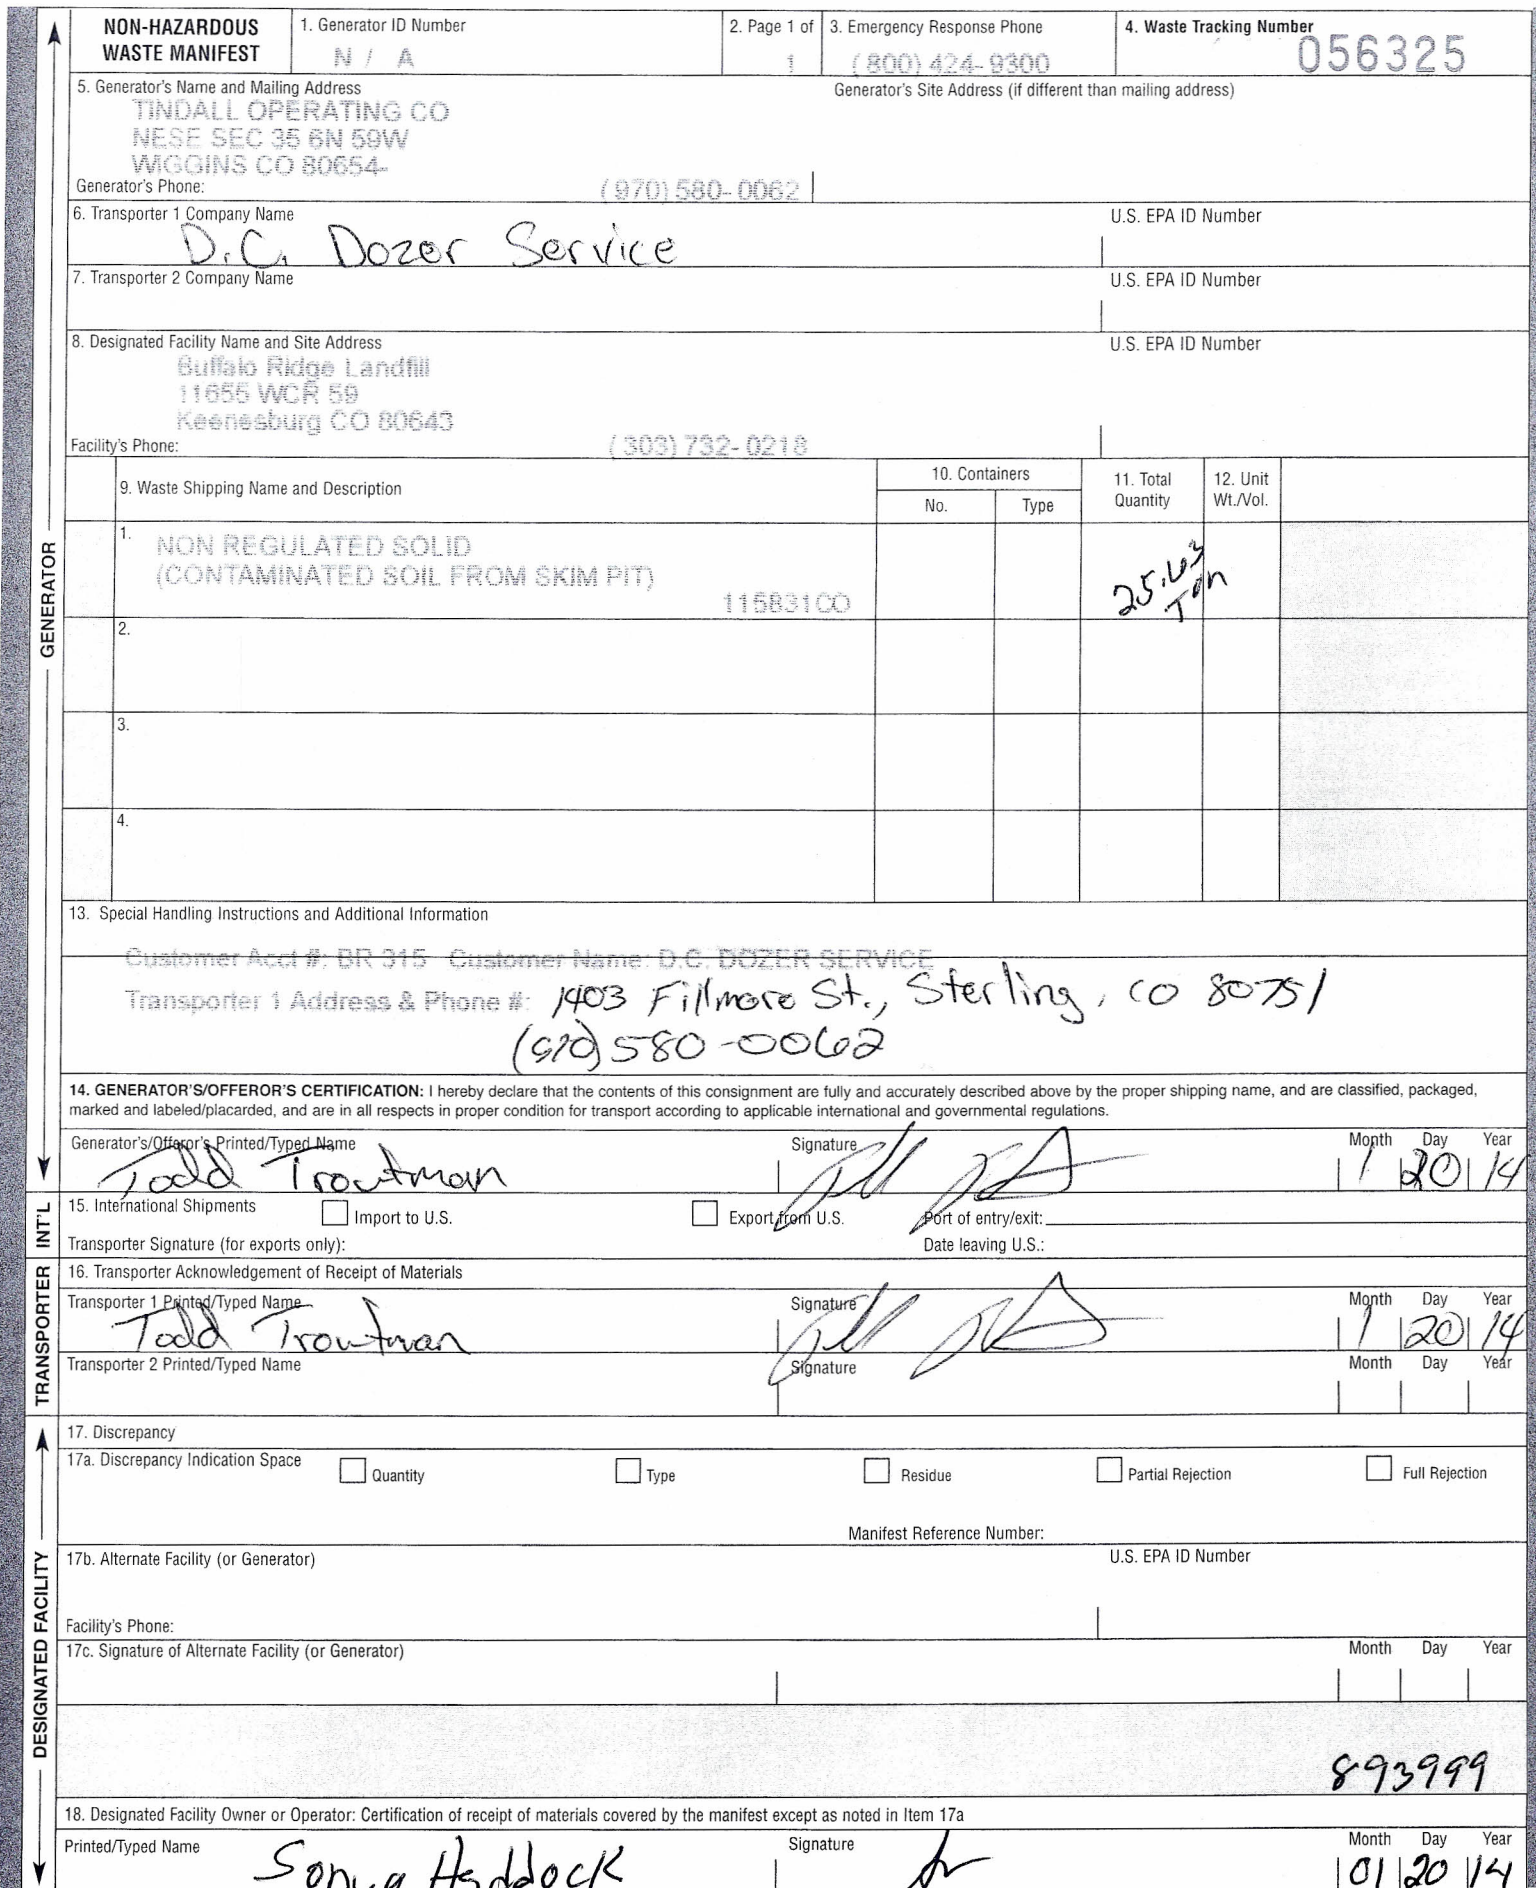 NON-HAZARDOUS WASTE MANIFEST
1. Generator ID Number
N / A
2. Page 1 of
1
3. Emergency Response Phone
(800) 424-9300
4. Waste Tracking Number
056325
5. Generator's Name and Mailing Address
Generator's Site Address (if different than mailing address)
TINDALL OPERATING CO
NESE SEC 35 6N 59W
WIGGINS CO 80654-
Generator's Phone:
(970) 580-0062
6. Transporter 1 Company Name
U.S. EPA ID Number
D.C. Dozer Service
7. Transporter 2 Company Name
U.S. EPA ID Number
8. Designated Facility Name and Site Address
U.S. EPA ID Number
Buffalo Ridge Landfill
11655 WCR 59
Keenesburg CO 80643
Facility's Phone:
(303) 732-0218
9. Waste Shipping Name and Description
10. Containers
No.
Type
11. Total Quantity
12. Unit Wt./Vol.
1.
NON REGULATED SOLID
(CONTAMINATED SOIL FROM SKIM PIT)
115831CO
25.63
Ton
2.
3.
4.
GENERATOR
13. Special Handling Instructions and Additional Information
Customer Acct #: BR 315 Customer Name: D.C. DOZER SERVICE
Transporter 1 Address & Phone #: 1403 Fillmore St., Sterling, CO 80751
(970) 580-0062
14. GENERATOR'S/OFFEROR'S CERTIFICATION: I hereby declare that the contents of this consignment are fully and accurately described above by the proper shipping name, and are classified, packaged,
marked and labeled/placarded, and are in all respects in proper condition for transport according to applicable international and governmental regulations.
Generator's/Offeror's Printed/Typed Name
Signature
Month Day Year
Todd Troutman
1 20 14
INT'L
15. International Shipments
Import to U.S.
Export from U.S.
Port of entry/exit:
Transporter Signature (for exports only):
Date leaving U.S.:
TRANSPORTER
16. Transporter Acknowledgement of Receipt of Materials
Transporter 1 Printed/Typed Name
Signature
Month Day Year
Todd Troutman
1 20 14
Transporter 2 Printed/Typed Name
Signature
Month Day Year
DESIGNATED FACILITY
17. Discrepancy
17a. Discrepancy Indication Space
Quantity
Type
Residue
Partial Rejection
Full Rejection
Manifest Reference Number:
17b. Alternate Facility (or Generator)
U.S. EPA ID Number
Facility's Phone:
17c. Signature of Alternate Facility (or Generator)
Month Day Year
893999
18. Designated Facility Owner or Operator: Certification of receipt of materials covered by the manifest except as noted in Item 17a
Printed/Typed Name
Signature
Month Day Year
Sonya Haddock
01 20 14